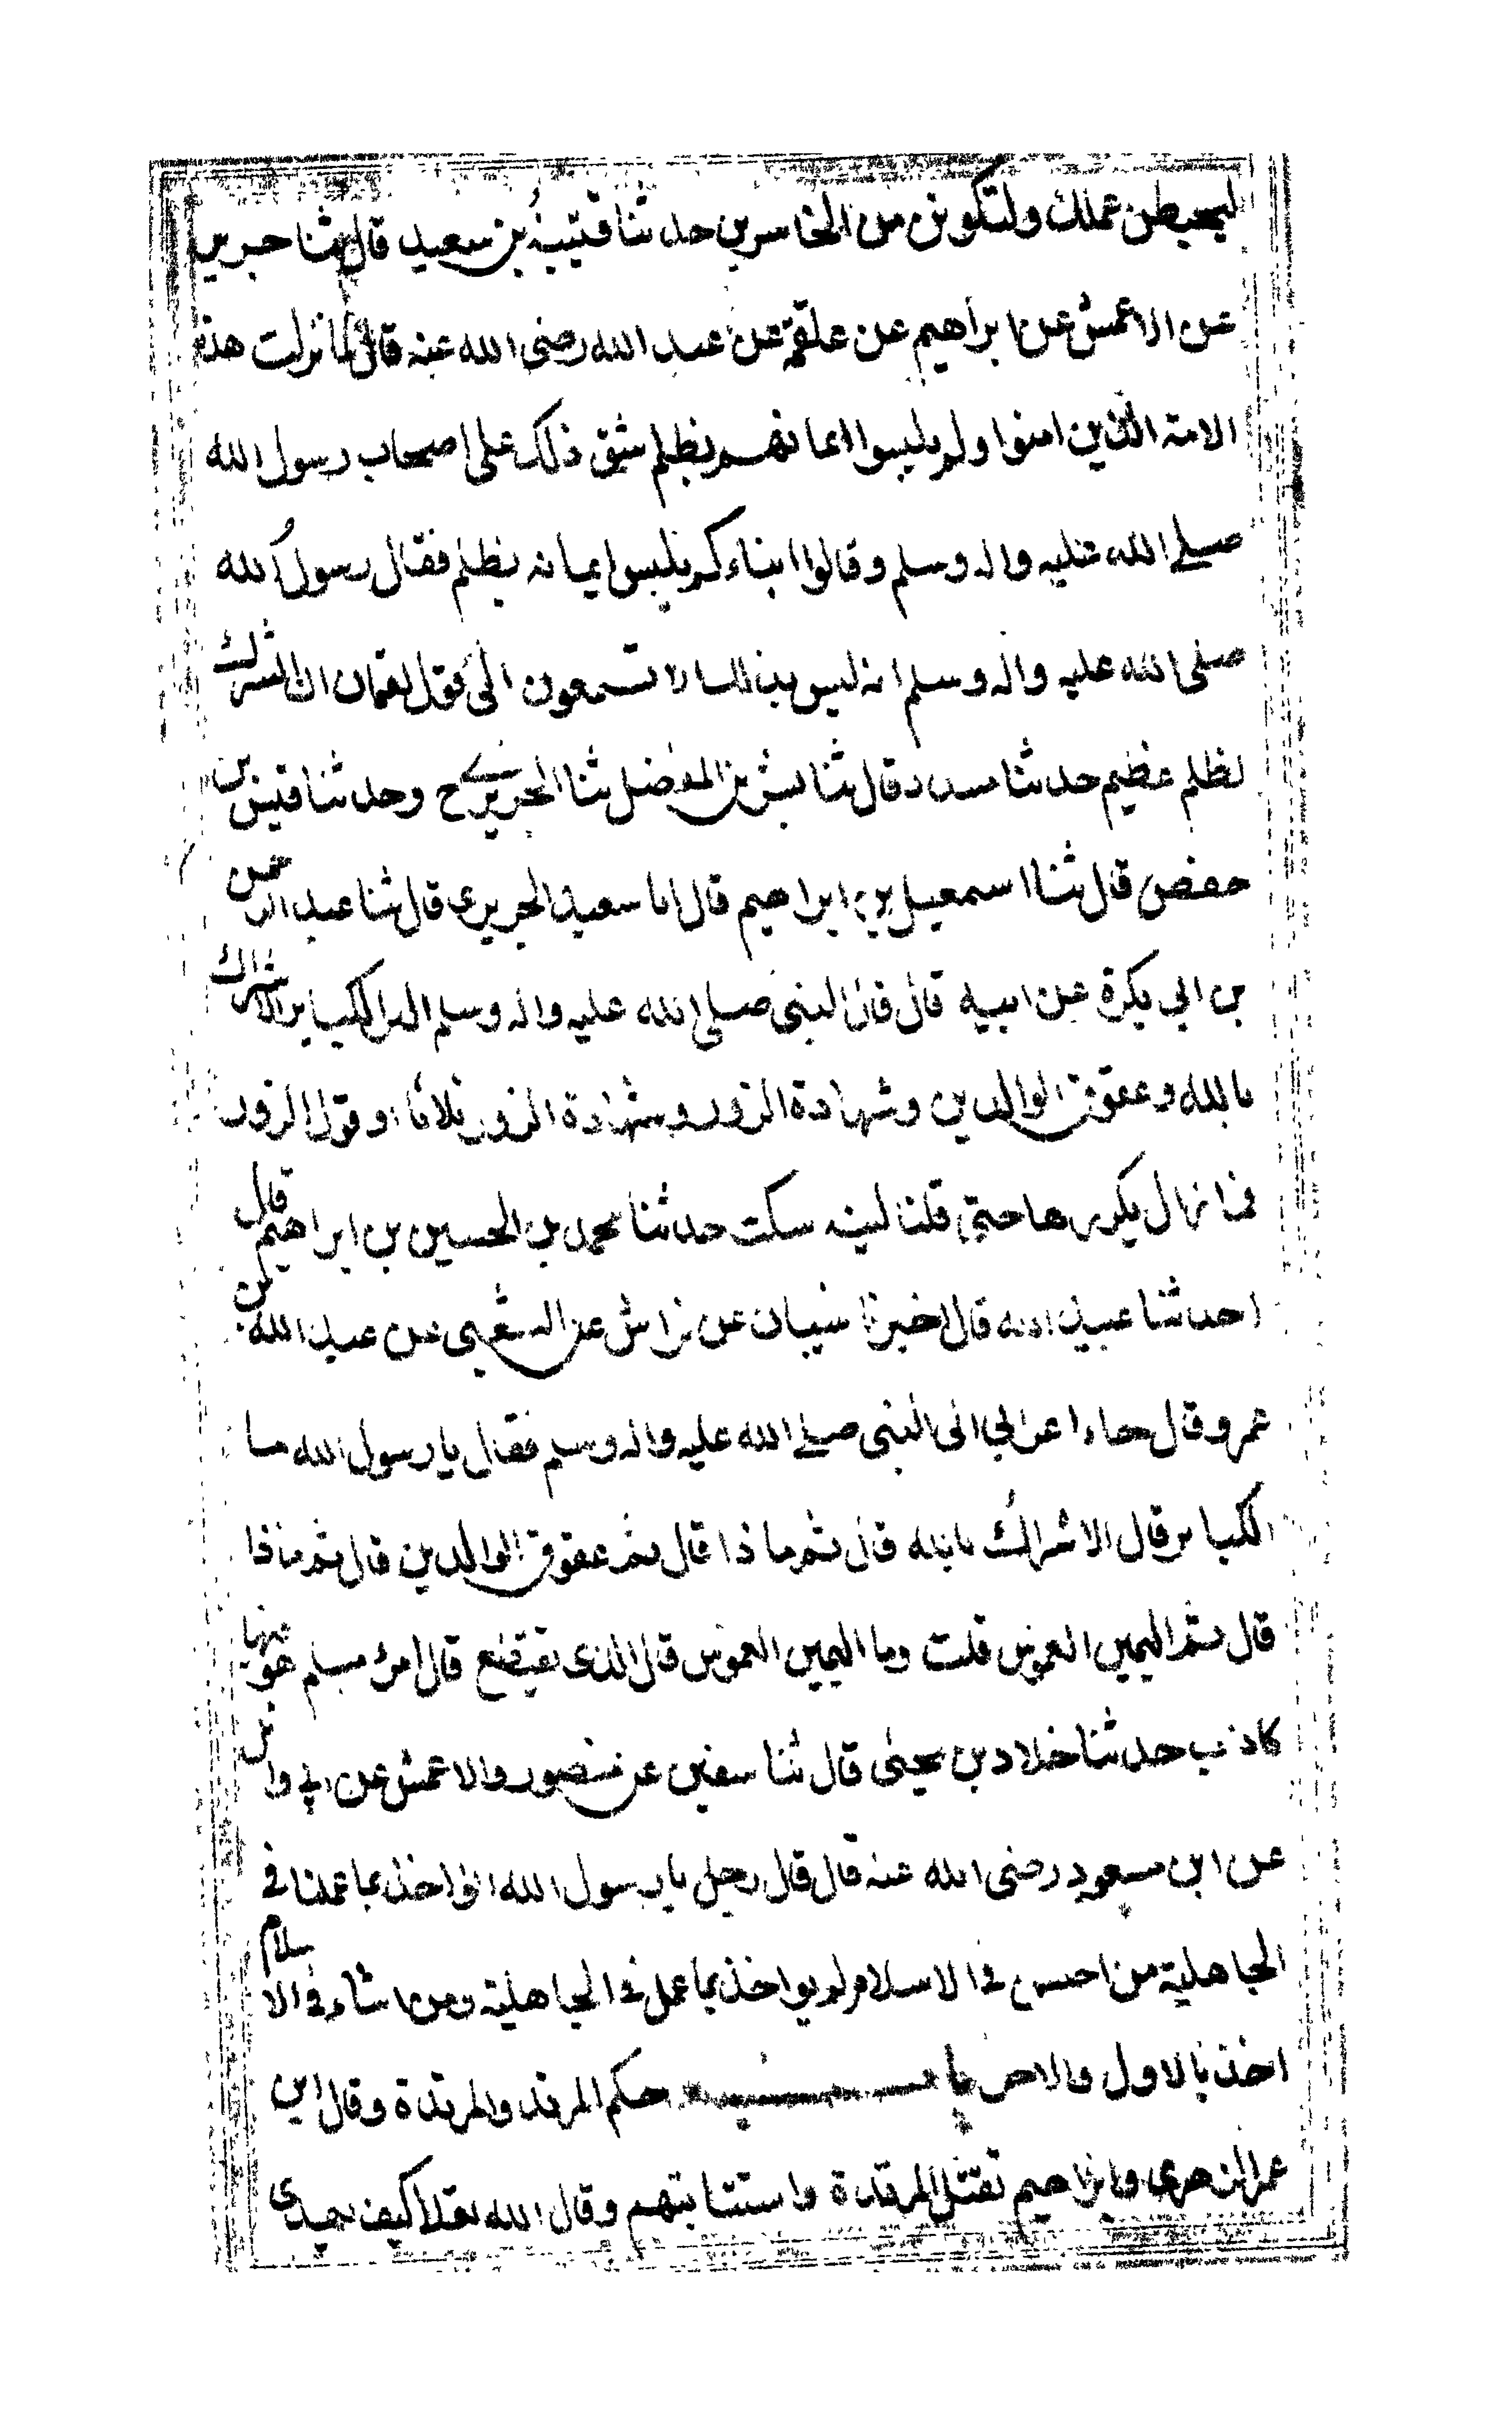 ليحبطن عملك ولتكونن من الخاسرين حدثنا قتيبة بن سعيد قال ثنا جرير
عن الاعمش عن ابراهيم عن علقمة عن عبد الله رضى الله عنه قال لما نزلت هذه
الاية الذين امنوا ولم يلبسوا ايمانهم بظلم شق ذلك على اصحاب رسول الله
صلے الله عليه واله وسلم وقالوا اينا لم يلبس ايمانه بظلم فقال رسول الله
صلى الله عليه واله وسلم انه ليس بذلك الا تسمعون الى قول لقمان ان الشرك
لظلم عظيم حدثنا مسدد قال ثنا بشر بن المفضل ثنا الجريرے ح وحدثنا قيس بن
حفص قال ثنا اسمعيل بن ابراهيم قال انا سعيد الجريرى قال ثنا عبد الرحمن
بن ابي بكرة عن ابيه قال قال النبى صلى الله عليه واله وسلم اكبر الكبائر الاشراك
بالله وعقوق الوالدين وشهادة الزور وشهادة الزور ثلاثا او قول الزور
فما زال يكررها حتى قلنا ليته سكت حدثنا محمد بن الحسين بن ابراهيم قال
احدثنا عبيد الله قال اخبرنا شيبان عن فراش عن الشعبى عن عبد الله بن
عمرو قال جاء اعرابي الى النبى صلے الله عليه واله وسلم فقال يا رسول الله ما
الكبائر قال الاشراك بالله قال ثم ماذا قال ثم عقوق الوالدين قال ثم ماذا
قال ثم اليمين الغموس قلت وما اليمين الغموس قال الذى يقتطع قال امرئ مسلم هو فيها
كاذب حدثنا خلاد بن يحيى قال ثنا سفين عن منصور والاعمش عن ابي وائل
عن ابن مسعود رضى الله عنه قال قال رجل يا رسول الله انؤاخذ بما عملنا في
الجاهلية من احسن في الاسلام لم يواخذ بما عمل في الجاهلية ومن اساء في الاسلام
اخذ بالاول والاخر باب حكم المرتد والمرتدة وقال ابن
عمر الزهرى وابراهيم تقتل المرتدة واستتابتهم وقال الله تعالى كيف يهدى